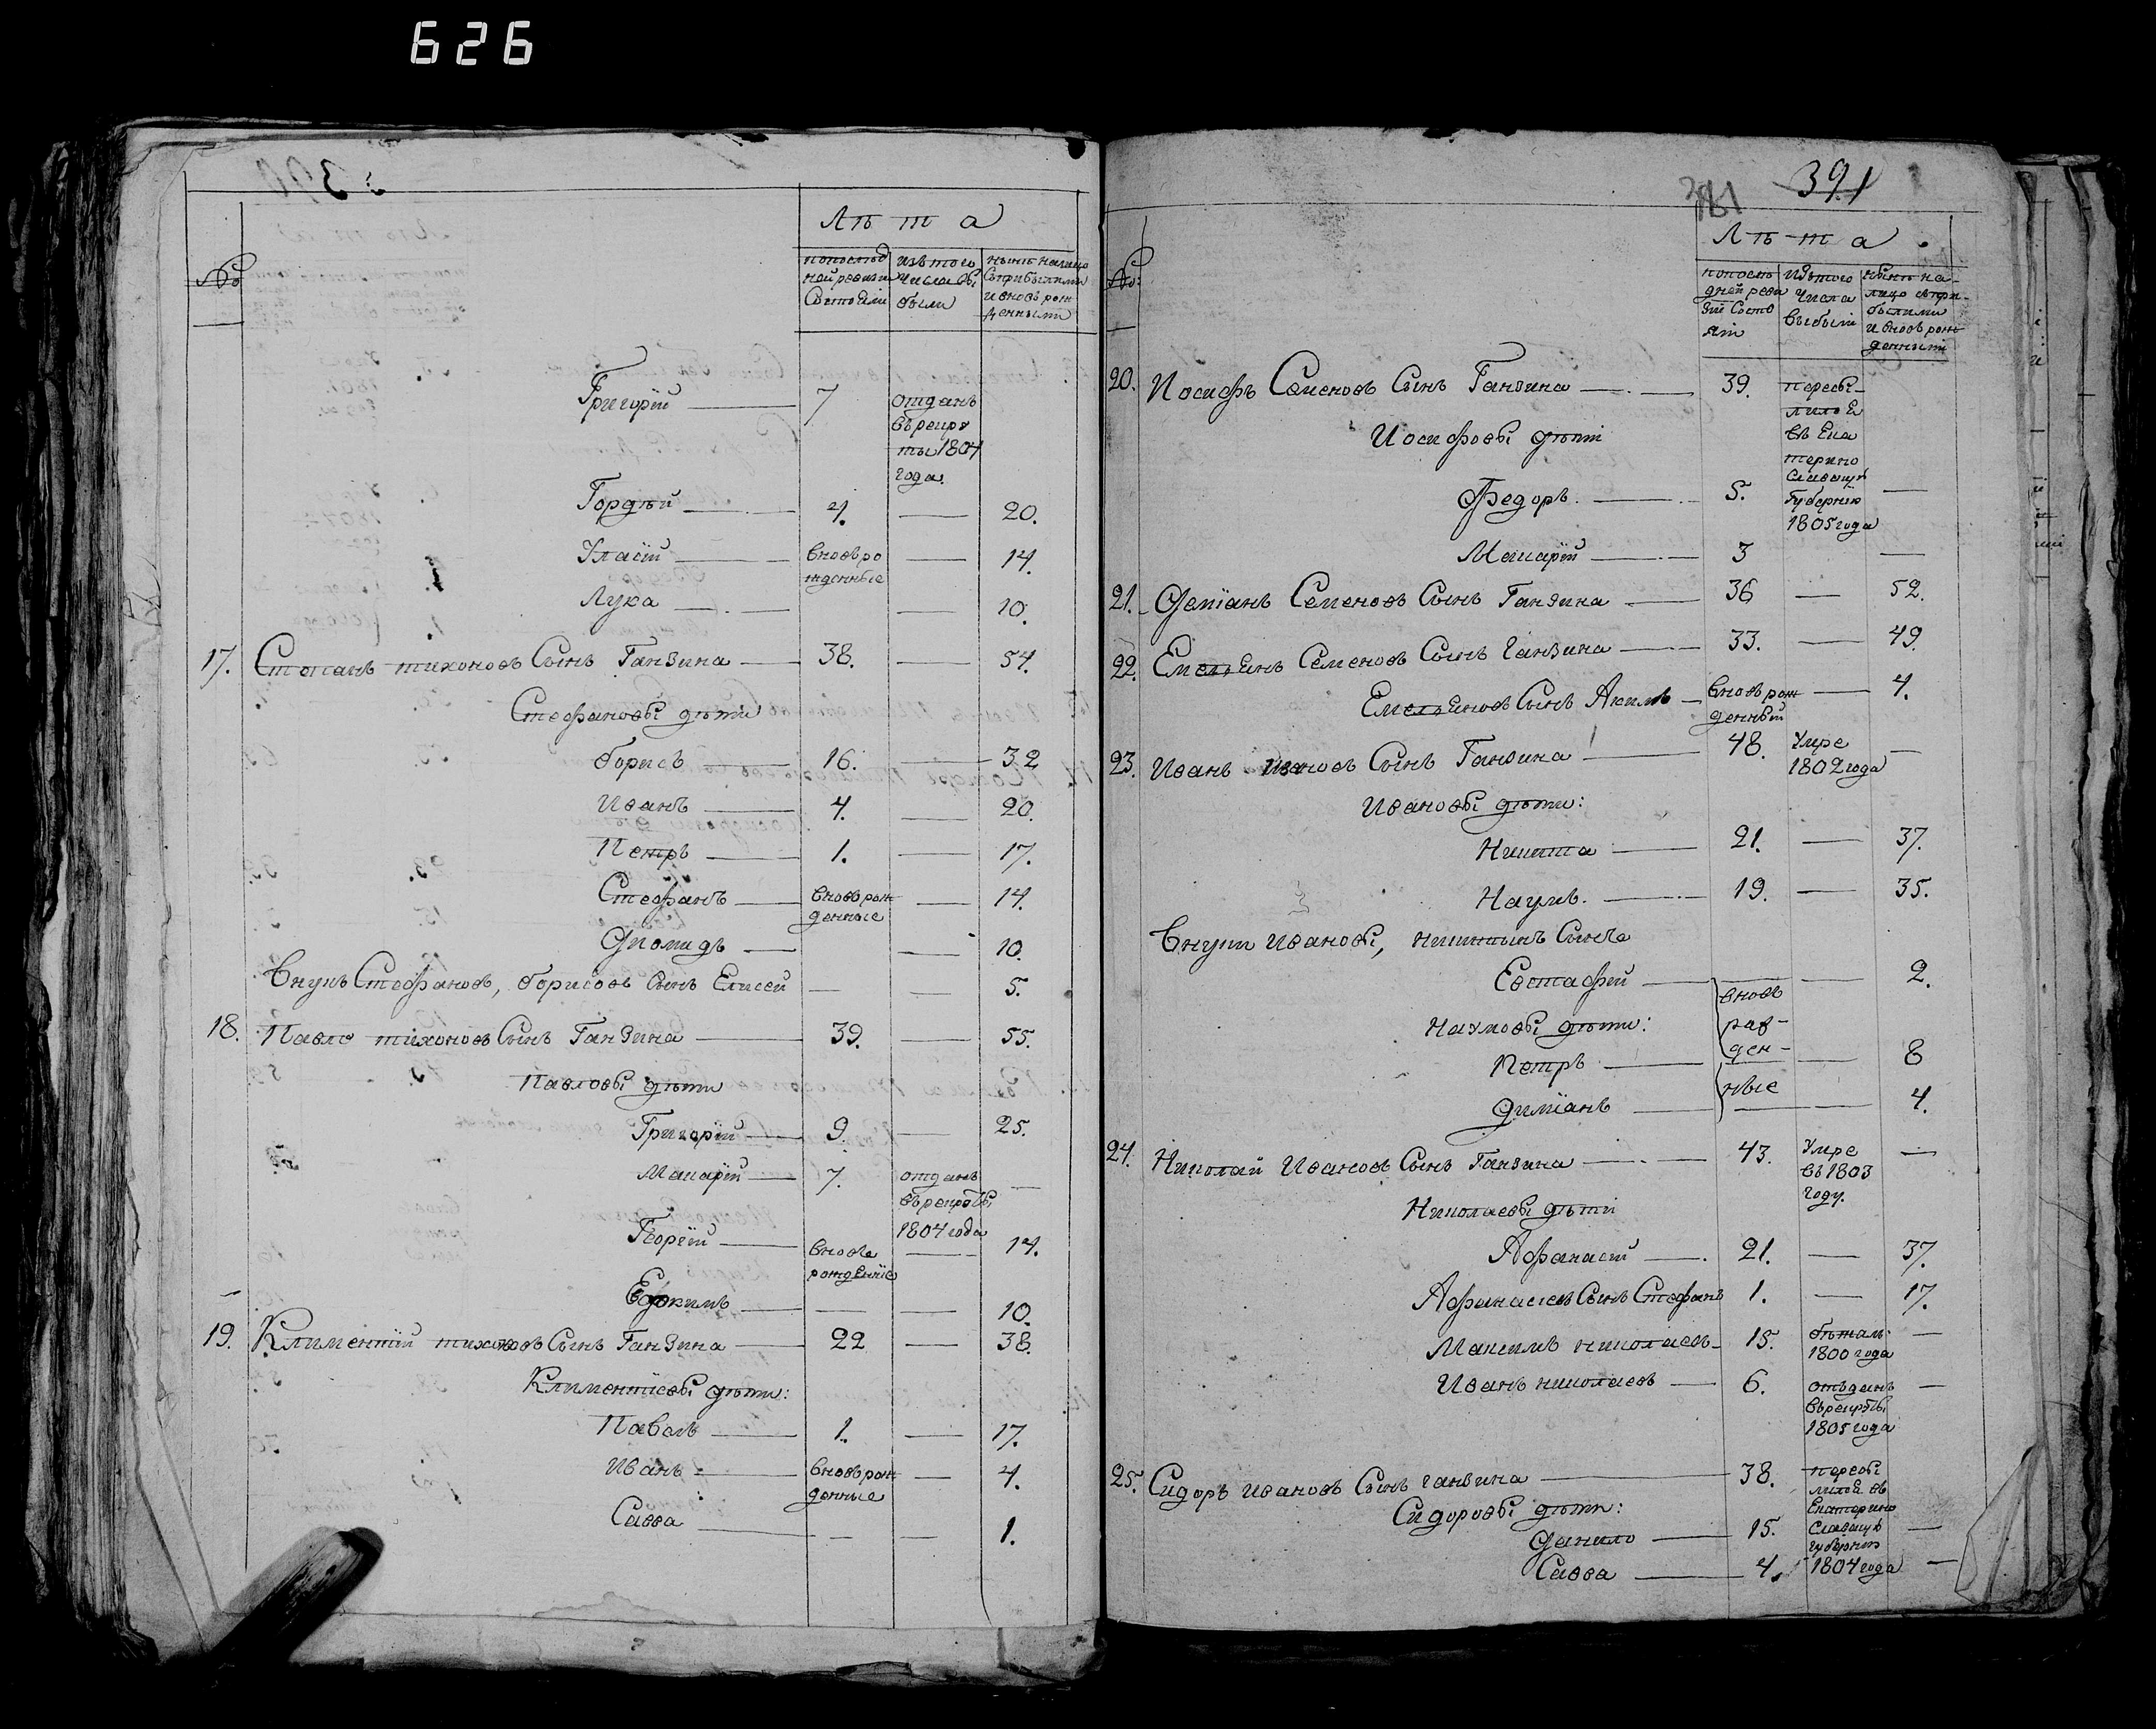 626
390
Лѣта
№
попослѣд
ней ревизии
Состояли
изъ того
числа вы
были
нынѣ налицо
Съприбылыми
и вновь рож
денными
Григорїй — 7
отданъ
въ рекру
ты 1804
года.
Гордѣй — 4. — 20.
Уласїй — вновь ро
жденные — 14.
Лука — — 10.
17. Стефанъ тихоновъ Сынъ Ганзина — 38. — 54.
Стефановы дѣти
борисъ — 16. — 32
Иванъ — 4. — 20.
Петръ — 1. — 17.
Стефанъ — вновь рож
денные — 14.
Диомидъ — — 10.
Внукъ Стефановъ, борисовъ Сынъ Елисей — — 5.
18. Павло тихоновъ Сынъ Ганзина — 39. — 55.
Павловы дѣти
Григорїй — 9. — 25.
Макарїй — 7. отданъ —
въ рекруты
1804 года
Георгїй — вновь
рожденїе — 14.
Евфкимъ — — — 10.
19. Климентїй тихоновъ Сынъ Ганзина — 22 — 38.
Климентїевы дѣти:
Павелъ — 1. — 17.
Иванъ — вновь рож
денные — 4.
Савва — — — 1.
391
391
Лѣта
№:
попослѣ
дней реви
зии Состо
яли
Изъ того
Числа
Выбыли
нынѣ на-
лицо съпри-
былыми
и вновь рож
денными
20. Иосифъ Семеновъ Сынъ Ганзина — 39. пересѣ-
лилсѧ
въ Ека
терино
Славску
Губернїю
1805 года
Иосифовы дѣти
Федоръ. — 5. —
Макарїй — 3 —
21. Демїанъ Семеновъ Сынъ Ганзина — 36 — 52.
22. Емельѧнъ Семеновъ Сынъ Ганзина — 33. — 49.
Емельѧновъ Сынъ Акимъ — вновь рож
денный — 4.
23. Иванъ Ивановъ Сынъ Ганзина — 48. Умре
1802 года —
Ивановы дѣти:
Никита — 21. — 37.
Наумъ. — 19. — 35.
Внуки Ивановы, никитынъ Сынъ
Евстафїй — — 2.
вновь
раж-
ден-
ные
Наумовы дѣти:
Петръ — — 8
димїанъ — — 4.
24. Николай Ивановъ Сынъ Ганзина — 43. Умре
въ 1803
году. —
Николаевы дѣти
Афанасїй — 21. — 37.
Афанасїевъ Сынъ Стефанъ 1. — 17.
Максимъ николаевъ — 15. бѣжалъ
1800 года —
Иванъ николаевъ — 6. отъданъ
въ рекруты
1805 года —
25. Сидоръ Ивановъ Сынъ ганзина — 38. пересѣ
лилсѧ въ
Екатерино
Славску
губернїю
1804 года
Сидоровы дѣти:
Данило — 15. —
Савва — 4. —